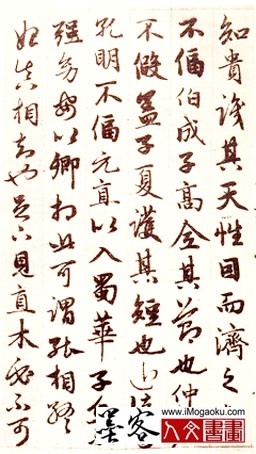 知貴識其天性因而濟之
不偪伯成子高全其節也仲
不假蓋子夏護其短也近諸
孔明不偪元直以入蜀華子
强幼安以卿相此可謂能相終
始真相知者也足下見直木必不可
墨客
www.iMogaoku.com
人文書畫